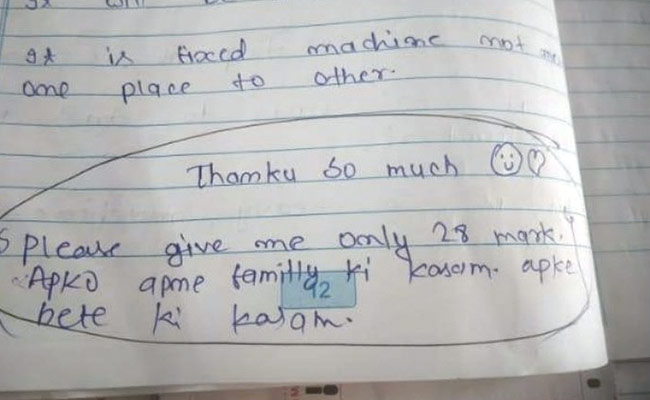 It is fixed machine not
one place to other.
Thanku so much
Please give me only 28 mark.
Apko apne familly ki kasam. apke
bete ki kasam.
92